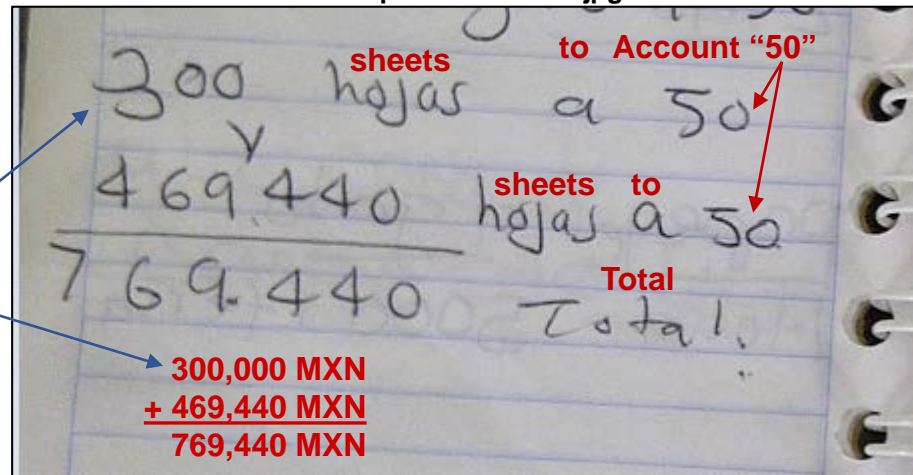 sheets to Account “50”
300 hojas a 50
y
sheets to
469.440 hojas a 50
Total
769.440 Total.
300,000 MXN
+ 469,440 MXN
769,440 MXN